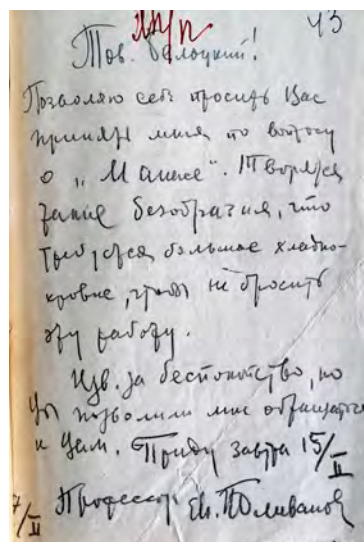 43
Тов. Белоцкий!
Позволяю себе просить Вас
принять меня по вопросу
о „Манасе“. Творятся
такие безобразия, что
требуется большое хладно-
кровие, чтобы не бросить
эту работу.
Изв. за беспокойство, но
Вы позволили мне обращаться
к Вам. Приду завтра 15/II
Профессор Ев. Поливанов